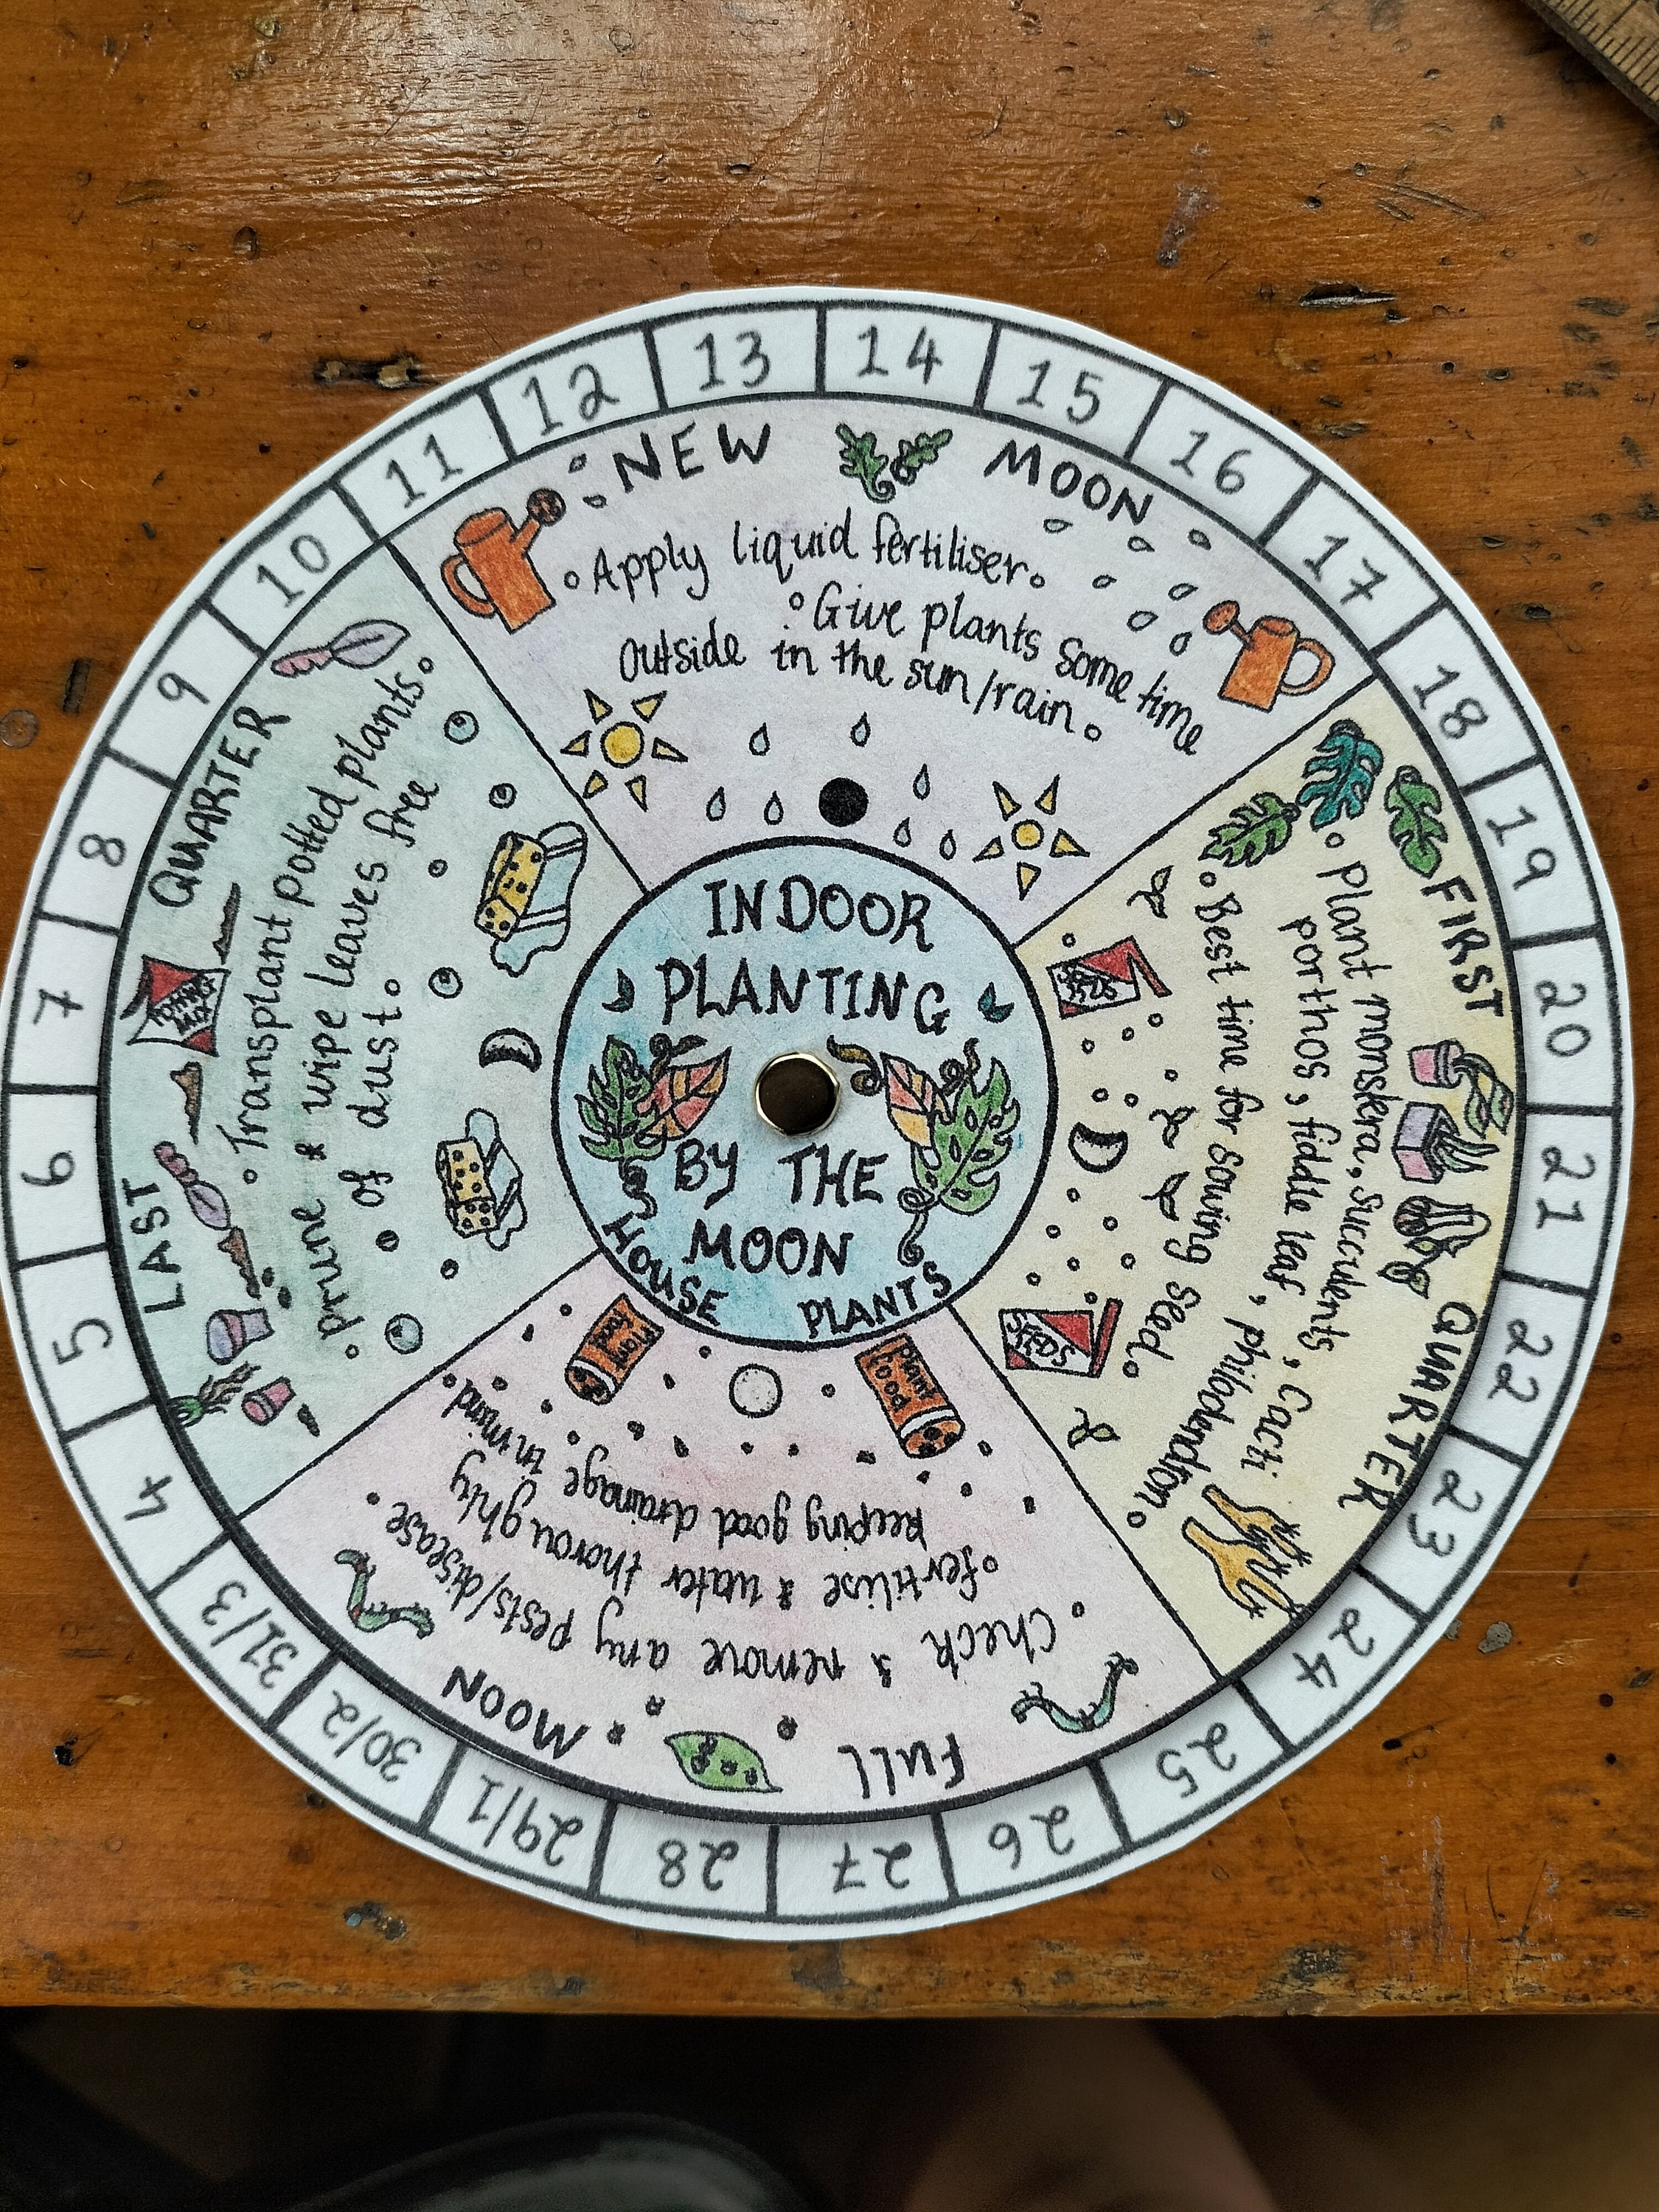 INDOOR
PLANTING
BY THE
MOON
HOUSE PLANTS
NEW MOON
Apply liquid fertiliser.
Give plants some time
outside in the sun/rain.
FIRST QUARTER
Plant monstera, succulents, cacti
porthos, fiddle leaf, philodendron.
Best time for sowing seed.
SEEDS
SEEDS
FULL MOON
Check & remove any pests/disease.
fertilise & water thoroughly
keeping good drainage in mind.
Plant food
Plant food
LAST QUARTER
Transplant potted plants.
prune & wipe leaves free
of dust.
POTTING MIX
4
5
6
7
8
9
10
11
12
13
14
15
16
17
18
19
20
21
22
23
24
25
26
27
28
29/1
30/2
31/3